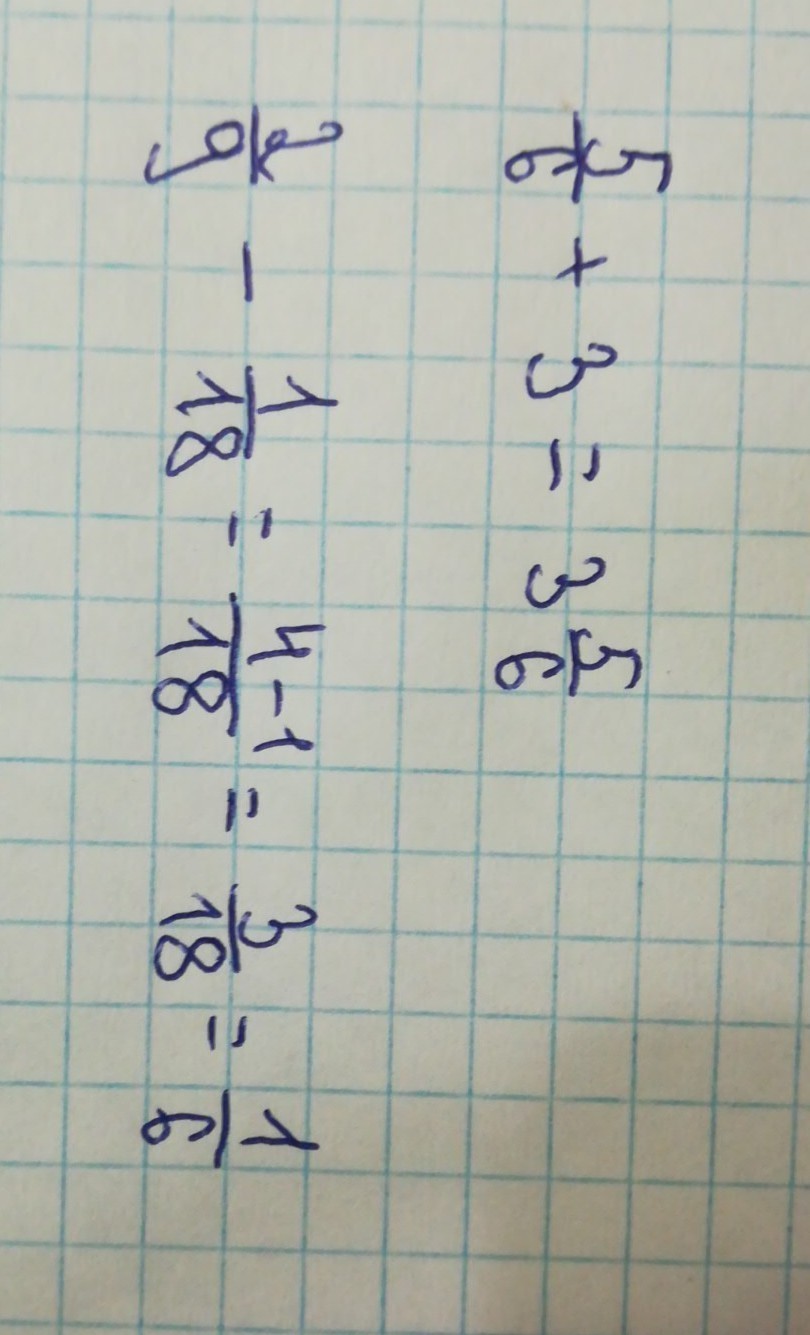 5/6 + 3 = 3 5/6
2/9 - 1/18 = 4-1/18 = 3/18 = 1/6